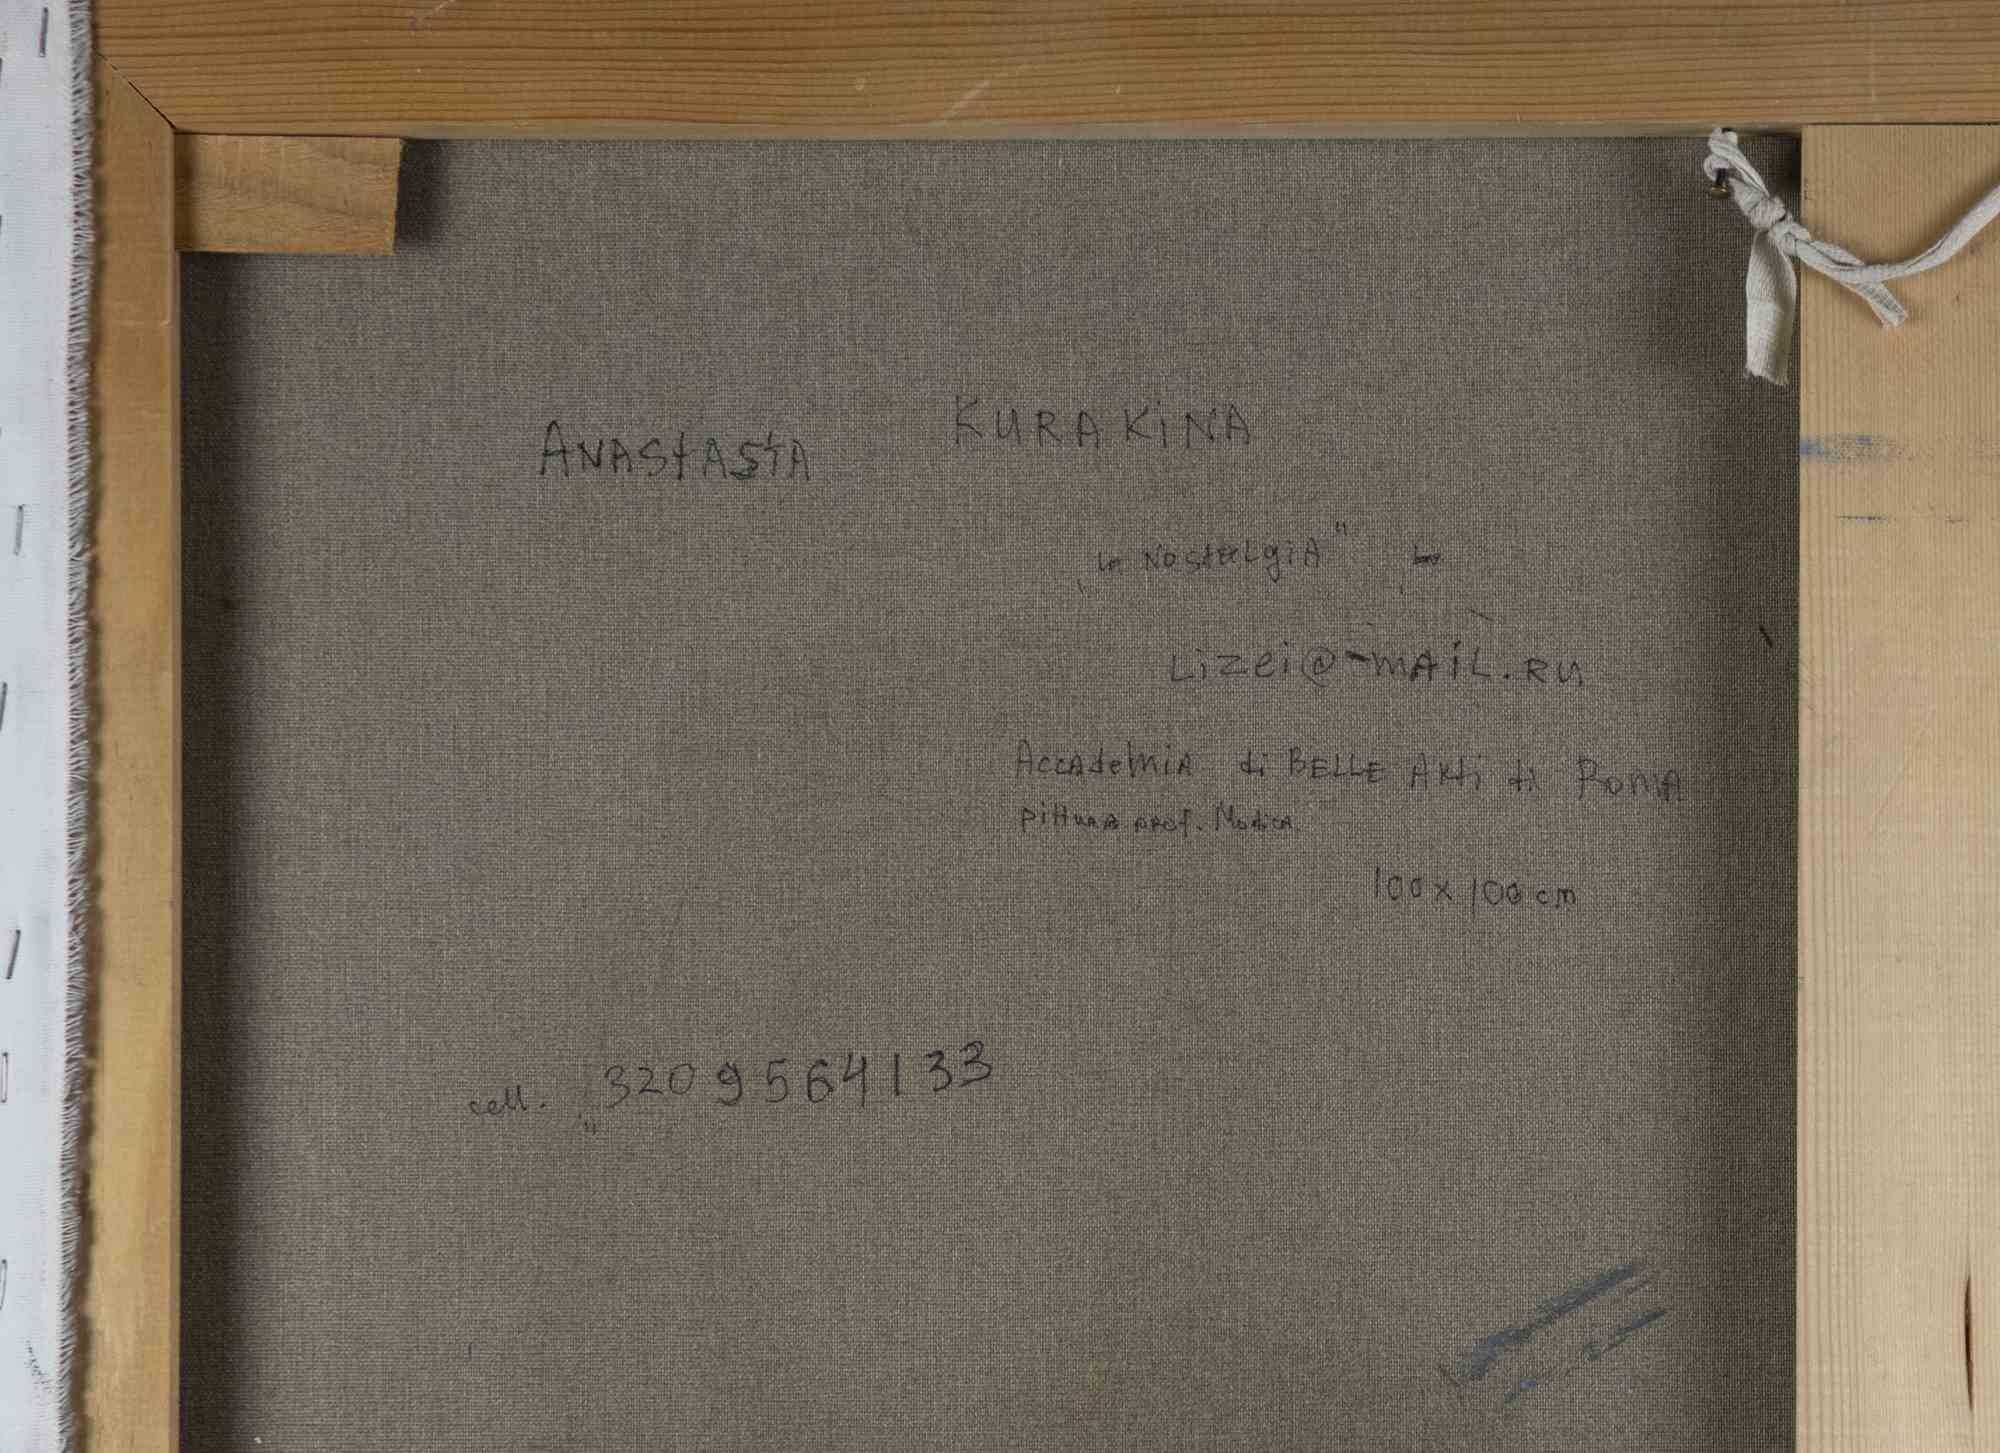 ANAStASiA KURAKiNA
„la NostalgiA"
Lizei@mAiL.RU
AccAdeMiA di BELLE ARti di RoMA
pittura prof. Modica
100 x 100 cm
cell. 3209564133